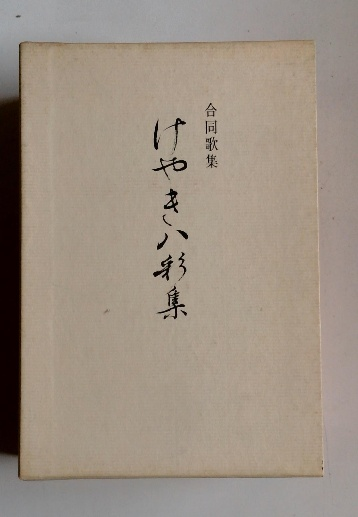 合同歌集
けやき八彩集